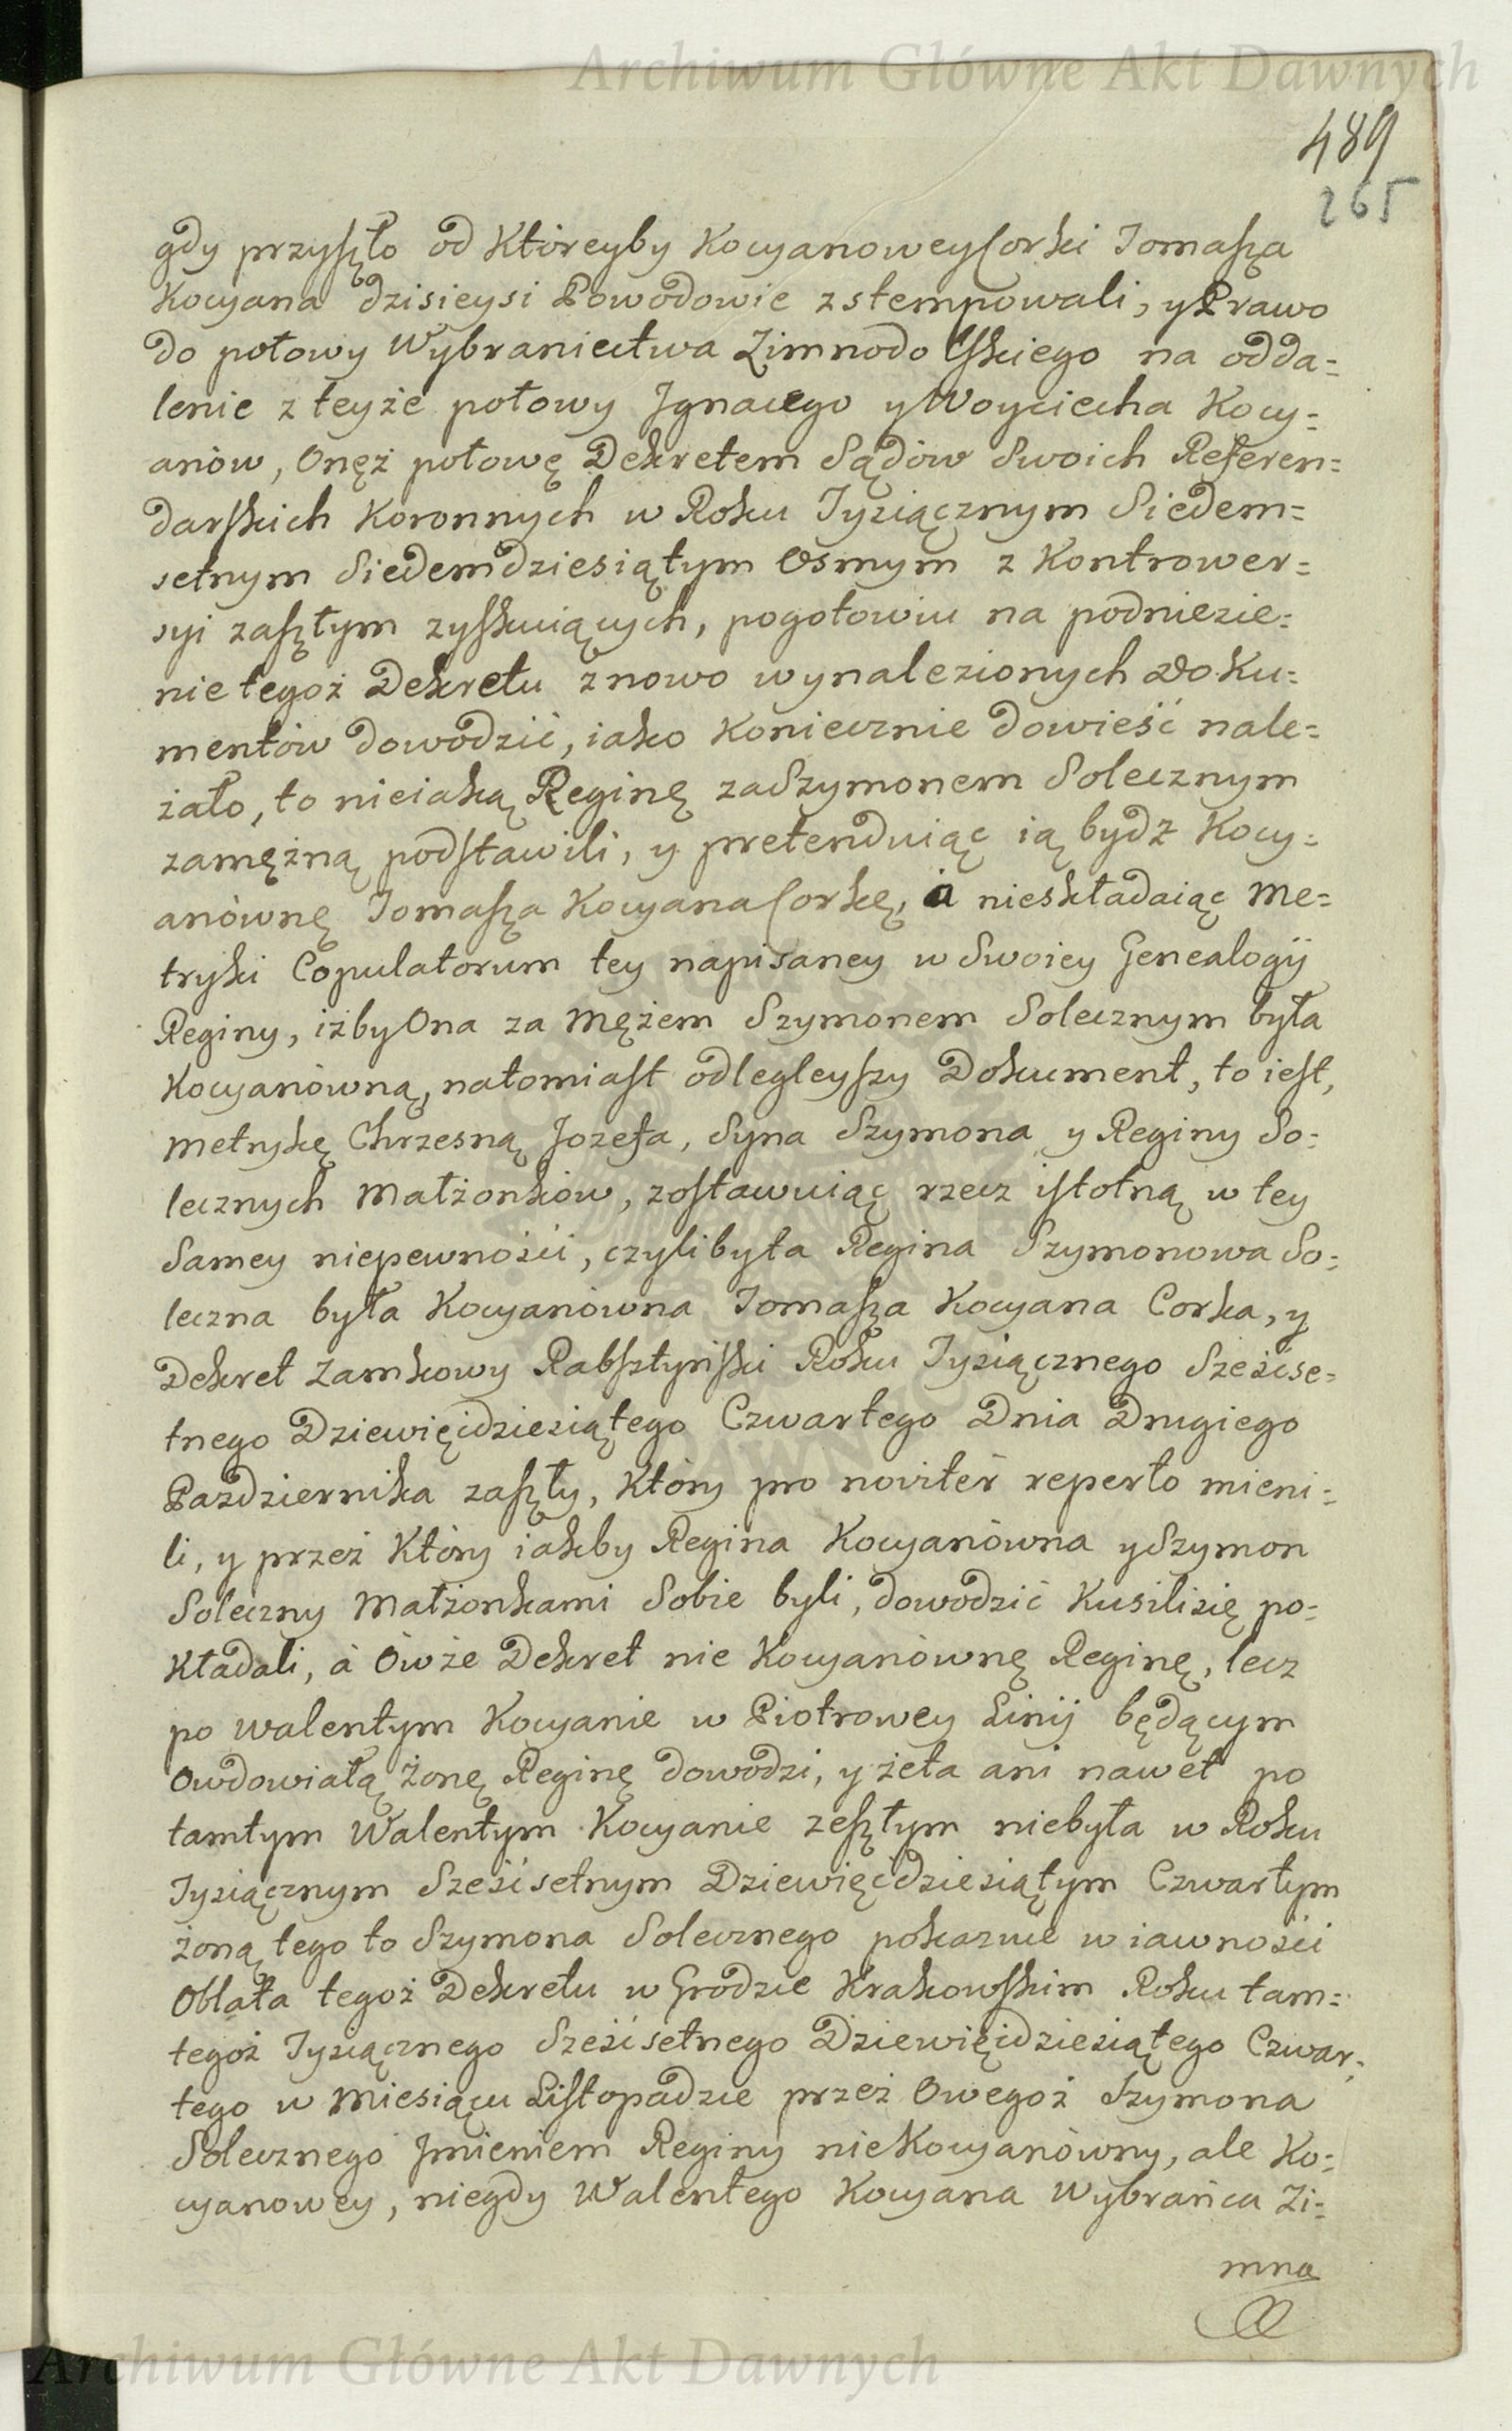 Archiwum Główne Akt Dawnych
489
265
gdy przyszło od Któreyby Kocyanowey Corki Tomasza
Kocyana dzisieysi Powodowie zstempowali, y Prawo
do połowy Wybraniectwa Zimnodolskiego na odda=
lenie z teyże połowy Jgnacego y Woyciecha Kocy=
anów, Onęż połowę Dekretem Sądów Swoich Referen=
darskich Koronnych w Roku Tysiącznym Siedem=
setnym Siedemdziesiątym Osmym z Kontrower=
syi zaszłym zyskuiących, pogotowiu na podniezie=
nie tegoż Dekretu znowo wynalezionych Doku=
mentów dowodzić, iako Koniecznie dowieść nale=
żało, to nieiaką Reginę za Szymonem Solecznym
zamężną podstawili, y pretenduiąc ią bydź Kocy=
anównę Tomasza Kocyana Corkę, a nieskładaiąc Me=
tryki Copulatorum tey napisaney w Swoiey Genealogij
Reginy, iżby Ona za Mężem Szymonem Solecznym była
Kocyanówną, natomiast odlegleyszy Dokument, to iest,
Metrykę Chrzesną Jozefa, Syna Szymona y Reginy So=
lecznych Małżonków, zostawuiąc rzecz istotną w tey
Samey niepewności, czyli była Regina Szymonowa So=
leczna była Kocyanówna Tomasza Kocyana Corka, y
Dekret Zamkowy Rabsztyński Roku Tysiącznego Sześćse=
tnego Dziewięćdziesiątego Czwartego Dnia Drugiego
Pazdziernika zaszły, Który pro noviter reperto mieni=
li, y przez Który iakby Regina Kocyanówna y Szymon
Soleczny Małżonkami Sobie byli, dowodzić Kusili się po=
kładali, à Ówże Dekret nie Kocyanównę Reginę, lecz
po Walentym Kocyanie w Piotrowey Linij będącym
Owdowiałą Żonę Reginę dowodzi, y że ta ani nawet po
tamtym Walentym Kocyanie zeszłym niebyła w Roku
Tysiącznym Sześćsetnym Dziewięćdziesiątym Czwartym
żoną tego to Szymona Solecznego pokazuie w iawności
Oblata tegoż Dekretu w Grodzie Krakowskim Roku tam=
tegoż Tysiącznego Sześćsetnego Dziewięćdziesiątego Czwar=
tego w Miesiącu Listopadzie przez Owegoż Szymona
Solecznego Jmieniem Reginy nie Kocyanówny, ale Ko=
cyanowey, niegdy Walentego Kocyana Wybrańca Zi=
mna
Archiwum Główne Akt Dawnych